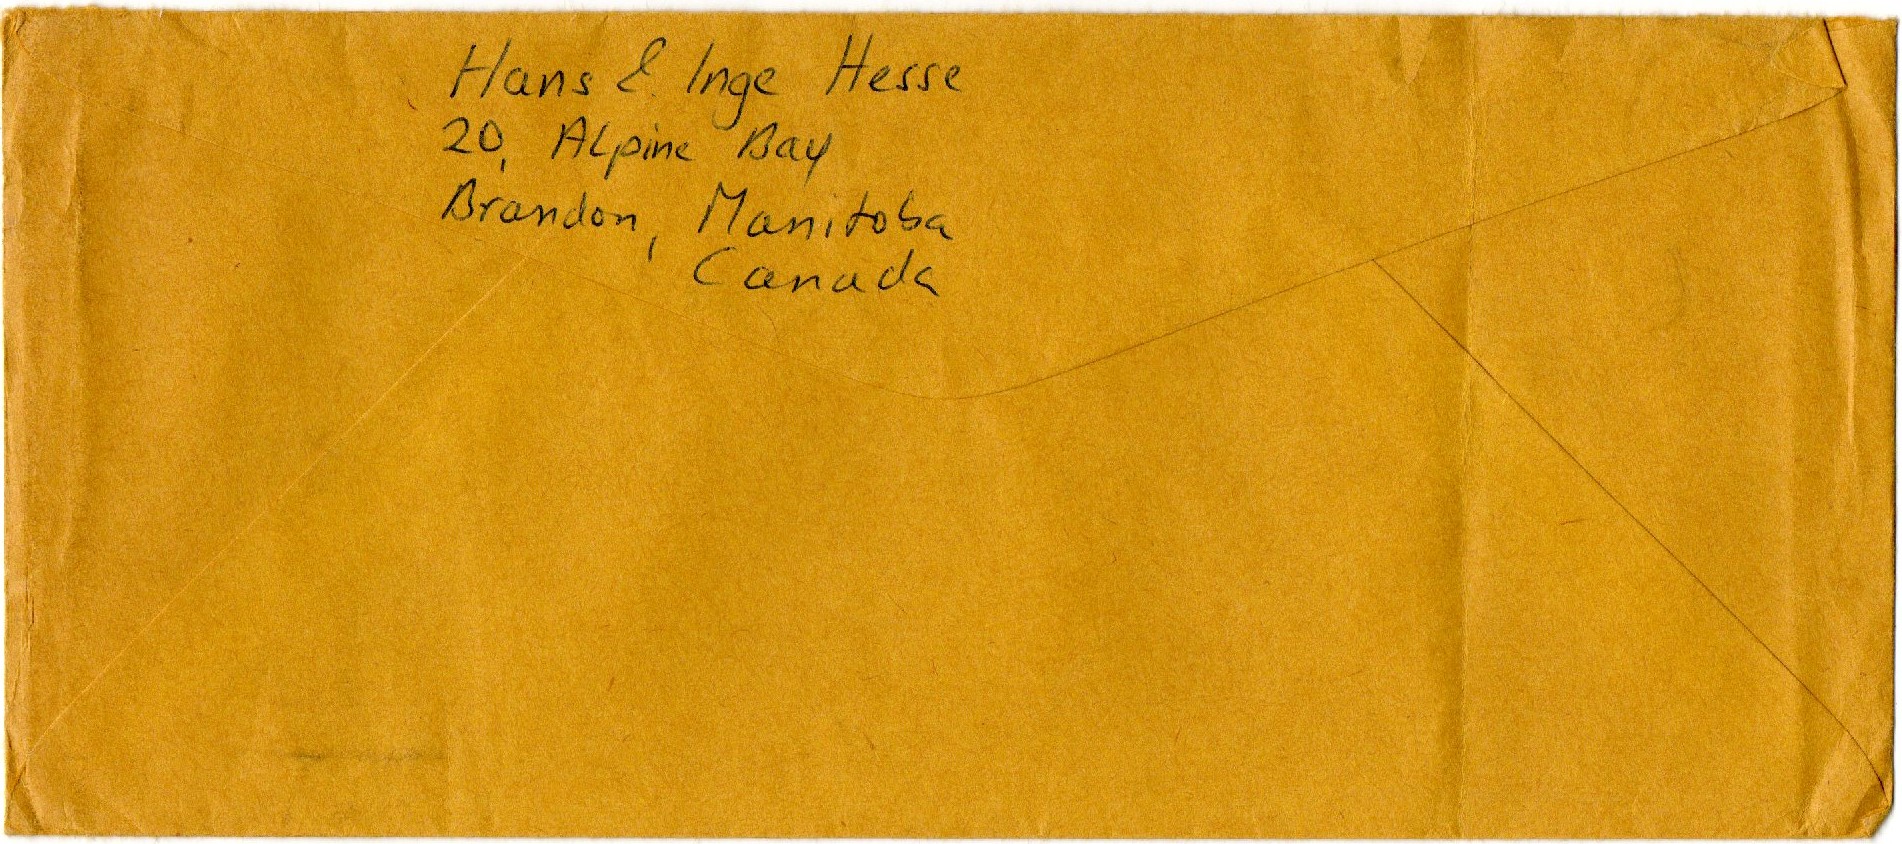 Hans & Inge Hesse
20, Alpine Bay
Brandon, Manitoba
Canada